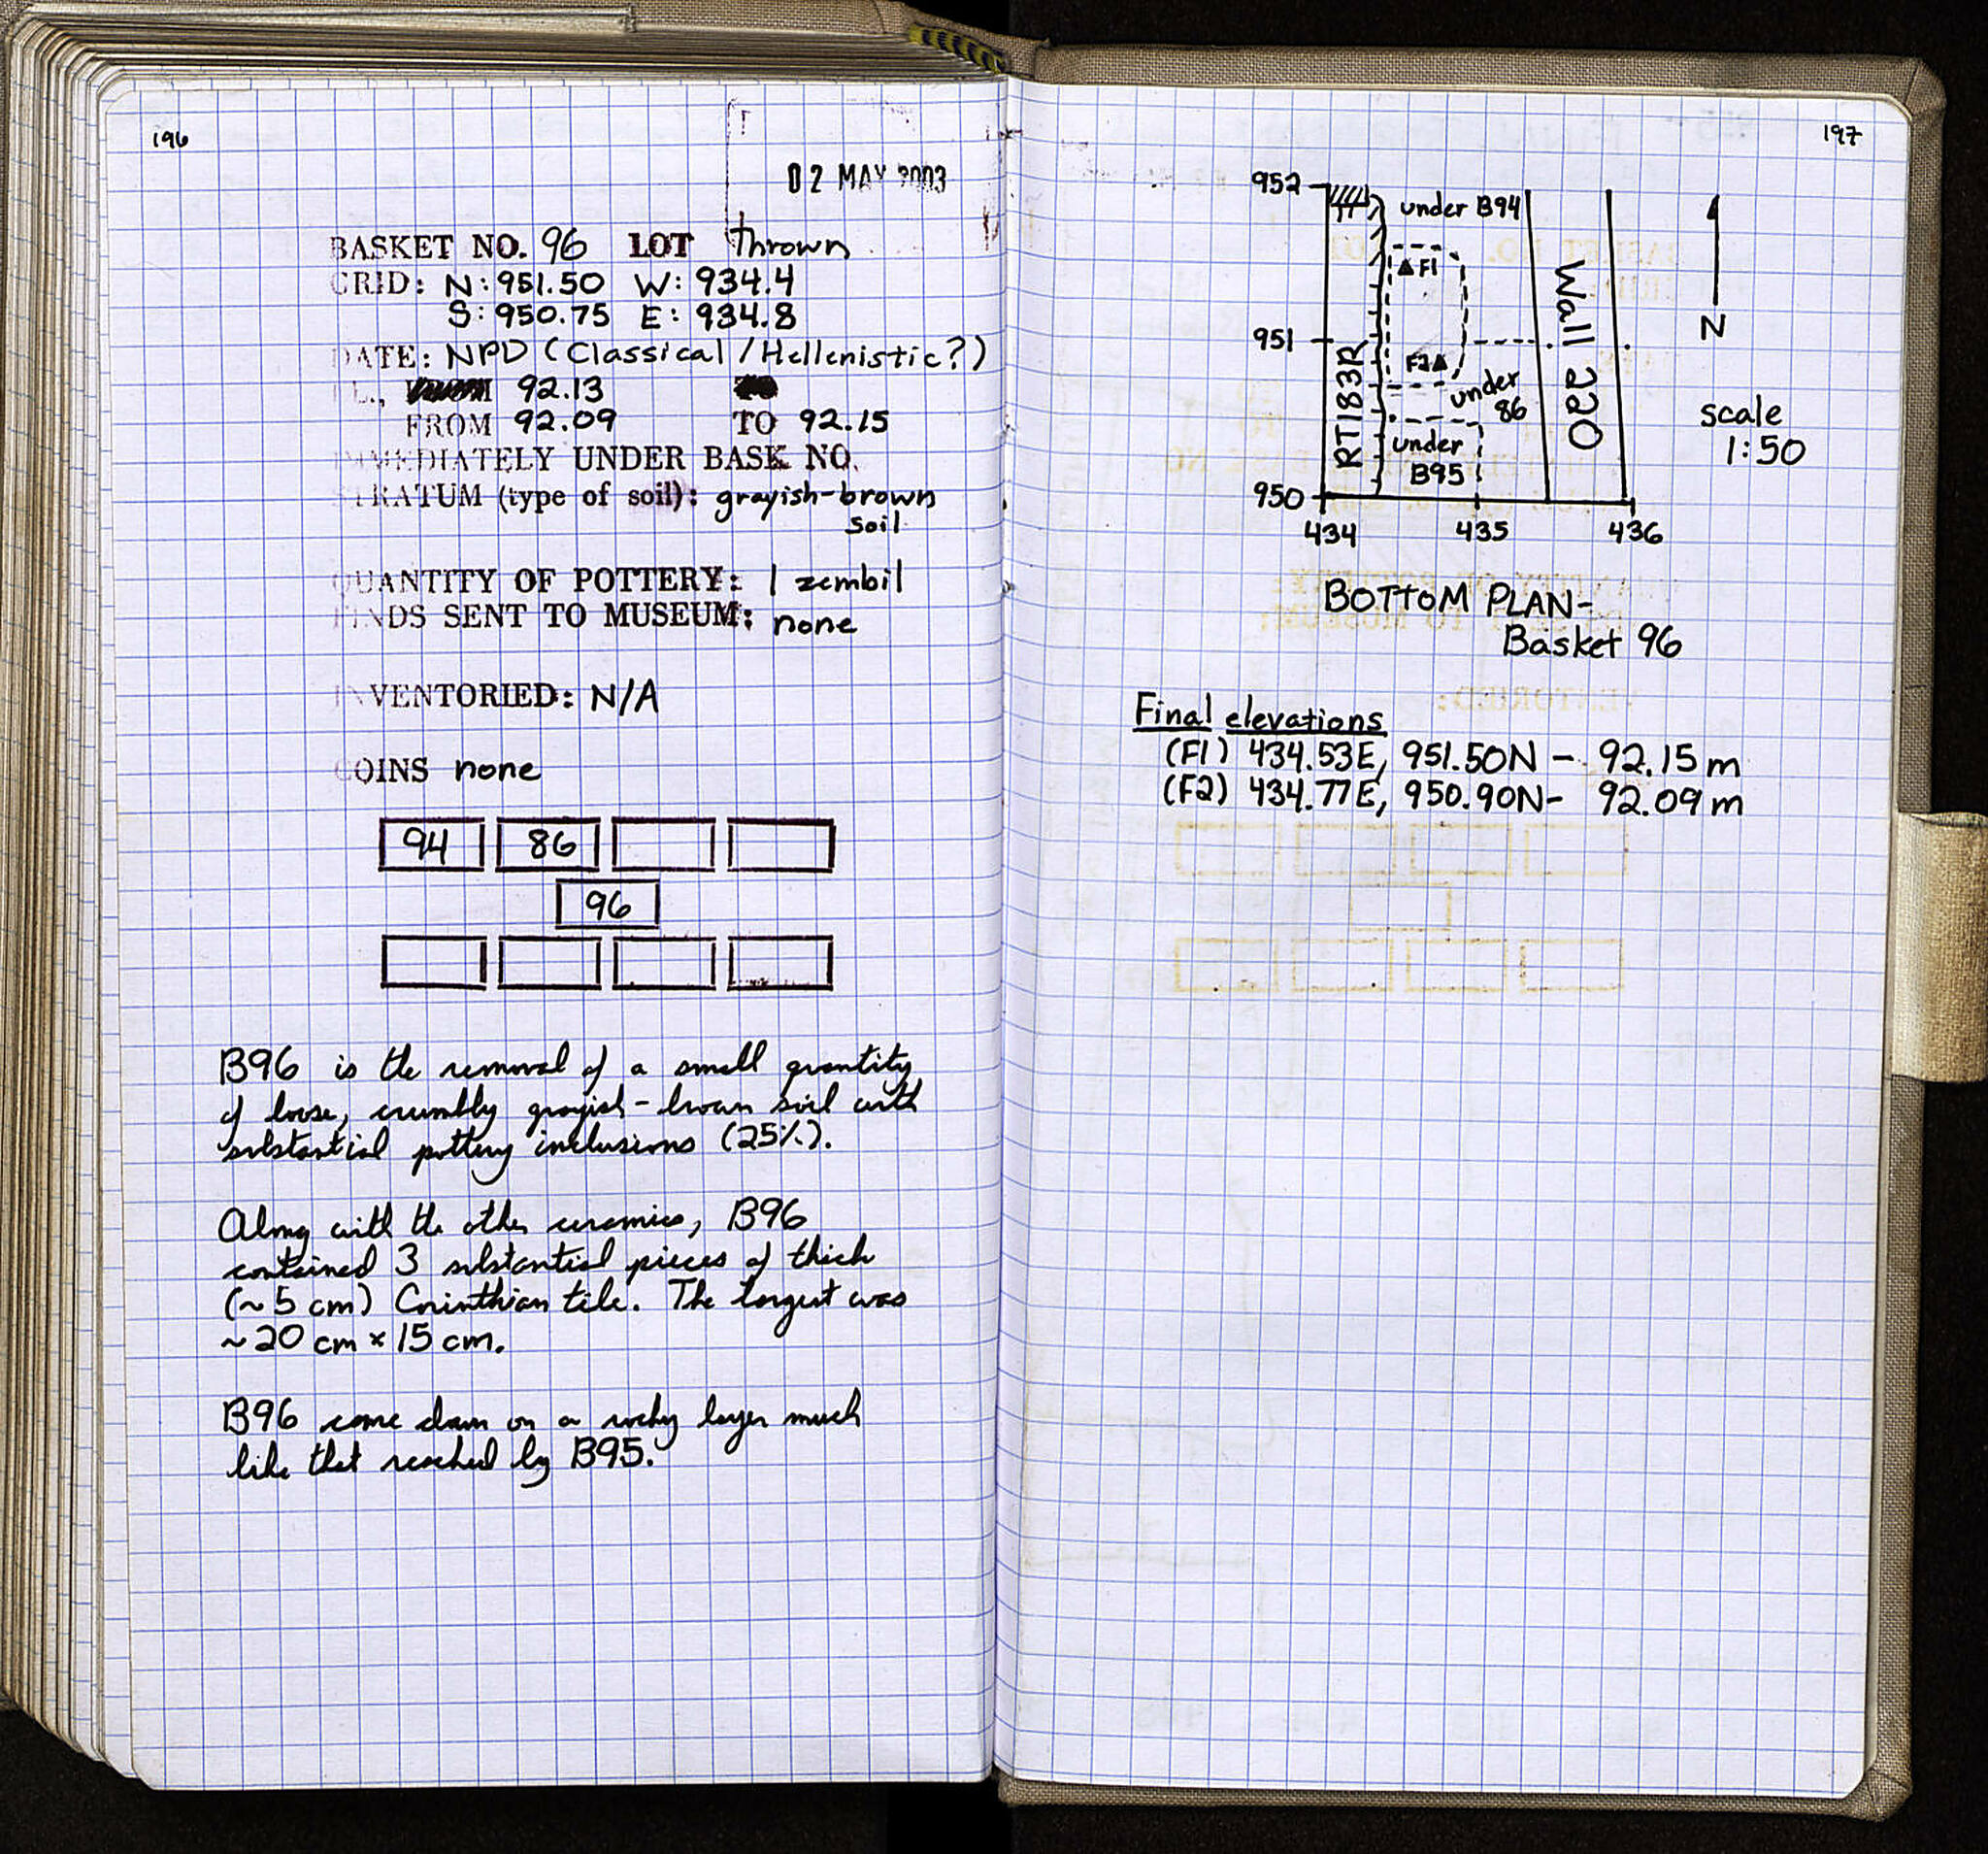 196
02 MAY 2003
BASKET NO. 96 LOT thrown
GRID: N:951.50 W: 934.4
S: 950.75 E: 934.8
DATE: NPD (Classical/Hellenistic?)
EL., 92.13
FROM 92.09 TO 92.15
IMMEDIATELY UNDER BASK NO.
STRATUM (type of soil): grayish-brown
soil
QUANTITY OF POTTERY: 1 zembil
FINDS SENT TO MUSEUM: none
INVENTORIED: N/A
COINS none
94 86
96
B96 is the removal of a small quantity
of loose, crumbly grayish-brown soil with
substantial pottery inclusions (25%).
Along with the other ceramics, B96
contained 3 substantial pieces of thick
(~5 cm) Corinthian tile. The largest was
~20 cm × 15 cm.
B96 came down on a rocky layer much
like that reached by B95.
197
952
under B94
▲F1
951
F2▲
under
86
under
B95
RT183R
Wall 220
N
scale
1:50
950
434 435 436
BOTTOM PLAN-
Basket 96
Final elevations
(F1) 434.53E, 951.50N - 92.15m
(F2) 434.77E, 950.90N- 92.09m